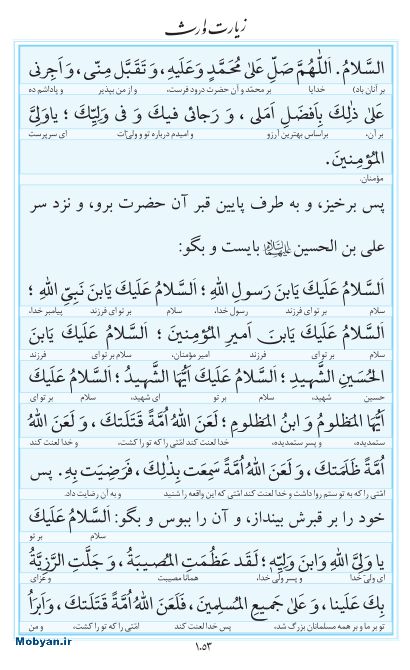 زیارت وارث
السَّلامُ. اَللّٰهُمَّ صَلِّ عَلیٰ مُحَمَّدٍ وَعَلَیهِ، وَ تَقَبَّل مِنّی، وَ اَجِرنی
بر آنان باد) خدایا بر محمّد و آن حضرت درود فرست، و از من بپذیر و پاداشم ده
عَلیٰ ذٰلِكَ بِاَفضَلِ اَمَلی ، وَ رَجائی فیكَ وَ فی وَلِیِّكَ ؛ یا وَلِیَّ
بر آن، براساس بهترین آرزو و امیدم درباره تو و ولی‌ات ای سرپرست
المُؤمِنینَ.
مؤمنان.
پس برخیز، و به طرف پایین قبر آن حضرت برو، و نزد سر
علی بن الحسین علیهما السلام بایست و بگو:
اَلسَّلامُ عَلَیكَ یَابنَ رَسولِ اللهِ ؛ اَلسَّلامُ عَلَیكَ یَابنَ نَبِیِّ اللهِ ؛
سلام بر تو ای فرزند رسول خدا، سلام بر تو ای فرزند پیامبر خدا،
اَلسَّلامُ عَلَیكَ یَابنَ اَمیرِ المُؤمِنینَ ؛ اَلسَّلامُ عَلَیكَ یَابنَ
سلام بر تو ای فرزند امیر مؤمنان، سلام بر تو ای فرزند
الحُسَینِ الشَّهیدِ ؛ اَلسَّلامُ عَلَیكَ اَیُّهَا الشَّهیدُ ؛ اَلسَّلامُ عَلَیكَ
حسین شهید، سلام بر تو ای شهید، سلام بر تو ای
اَیُّهَا المَظلومُ وَ ابنُ المَظلومِ ؛ لَعَنَ اللهُ اُمَّةً قَتَلَتكَ ، وَ لَعَنَ اللهُ
ستمدیده، و پسر ستمدیده، خدا لعنت کند امّتی را که تو را کشت، و خدا لعنت کند
اُمَّةً ظَلَمَتكَ ، وَ لَعَنَ اللهُ اُمَّةً سَمِعَت بِذٰلِكَ ، فَرَضِیَت بِهِ. پس
امّتی را که به تو ستم روا داشت و خدا لعنت کند امّتی که این واقعه را شنید و به آن رضایت داد.
خود را بر قبرش بینداز، و آن را ببوس و بگو: اَلسَّلامُ عَلَیكَ
سلام بر تو
یا وَلِیَّ اللهِ وَابنَ وَلِیِّهِ ؛ لَقَد عَظُمَتِ المُصیبَةُ ، وَ جَلَّتِ الرَّزِیَّةُ
ای ولیّ خدا و پسر ولیّ خدا، همانا مصیبت و عزای
بِكَ عَلَینا ، وَ عَلیٰ جَمیعِ المُسلِمینَ ، فَلَعَنَ اللهُ اُمَّةً قَتَلَتكَ ، وَ اَبرَاُ
تو بر ما و بر همه مسلمانان بزرگ شد، پس خدا لعنت کند امّتی را که تو را کشت، و من
۱۰۵۳
Mobyan.ir